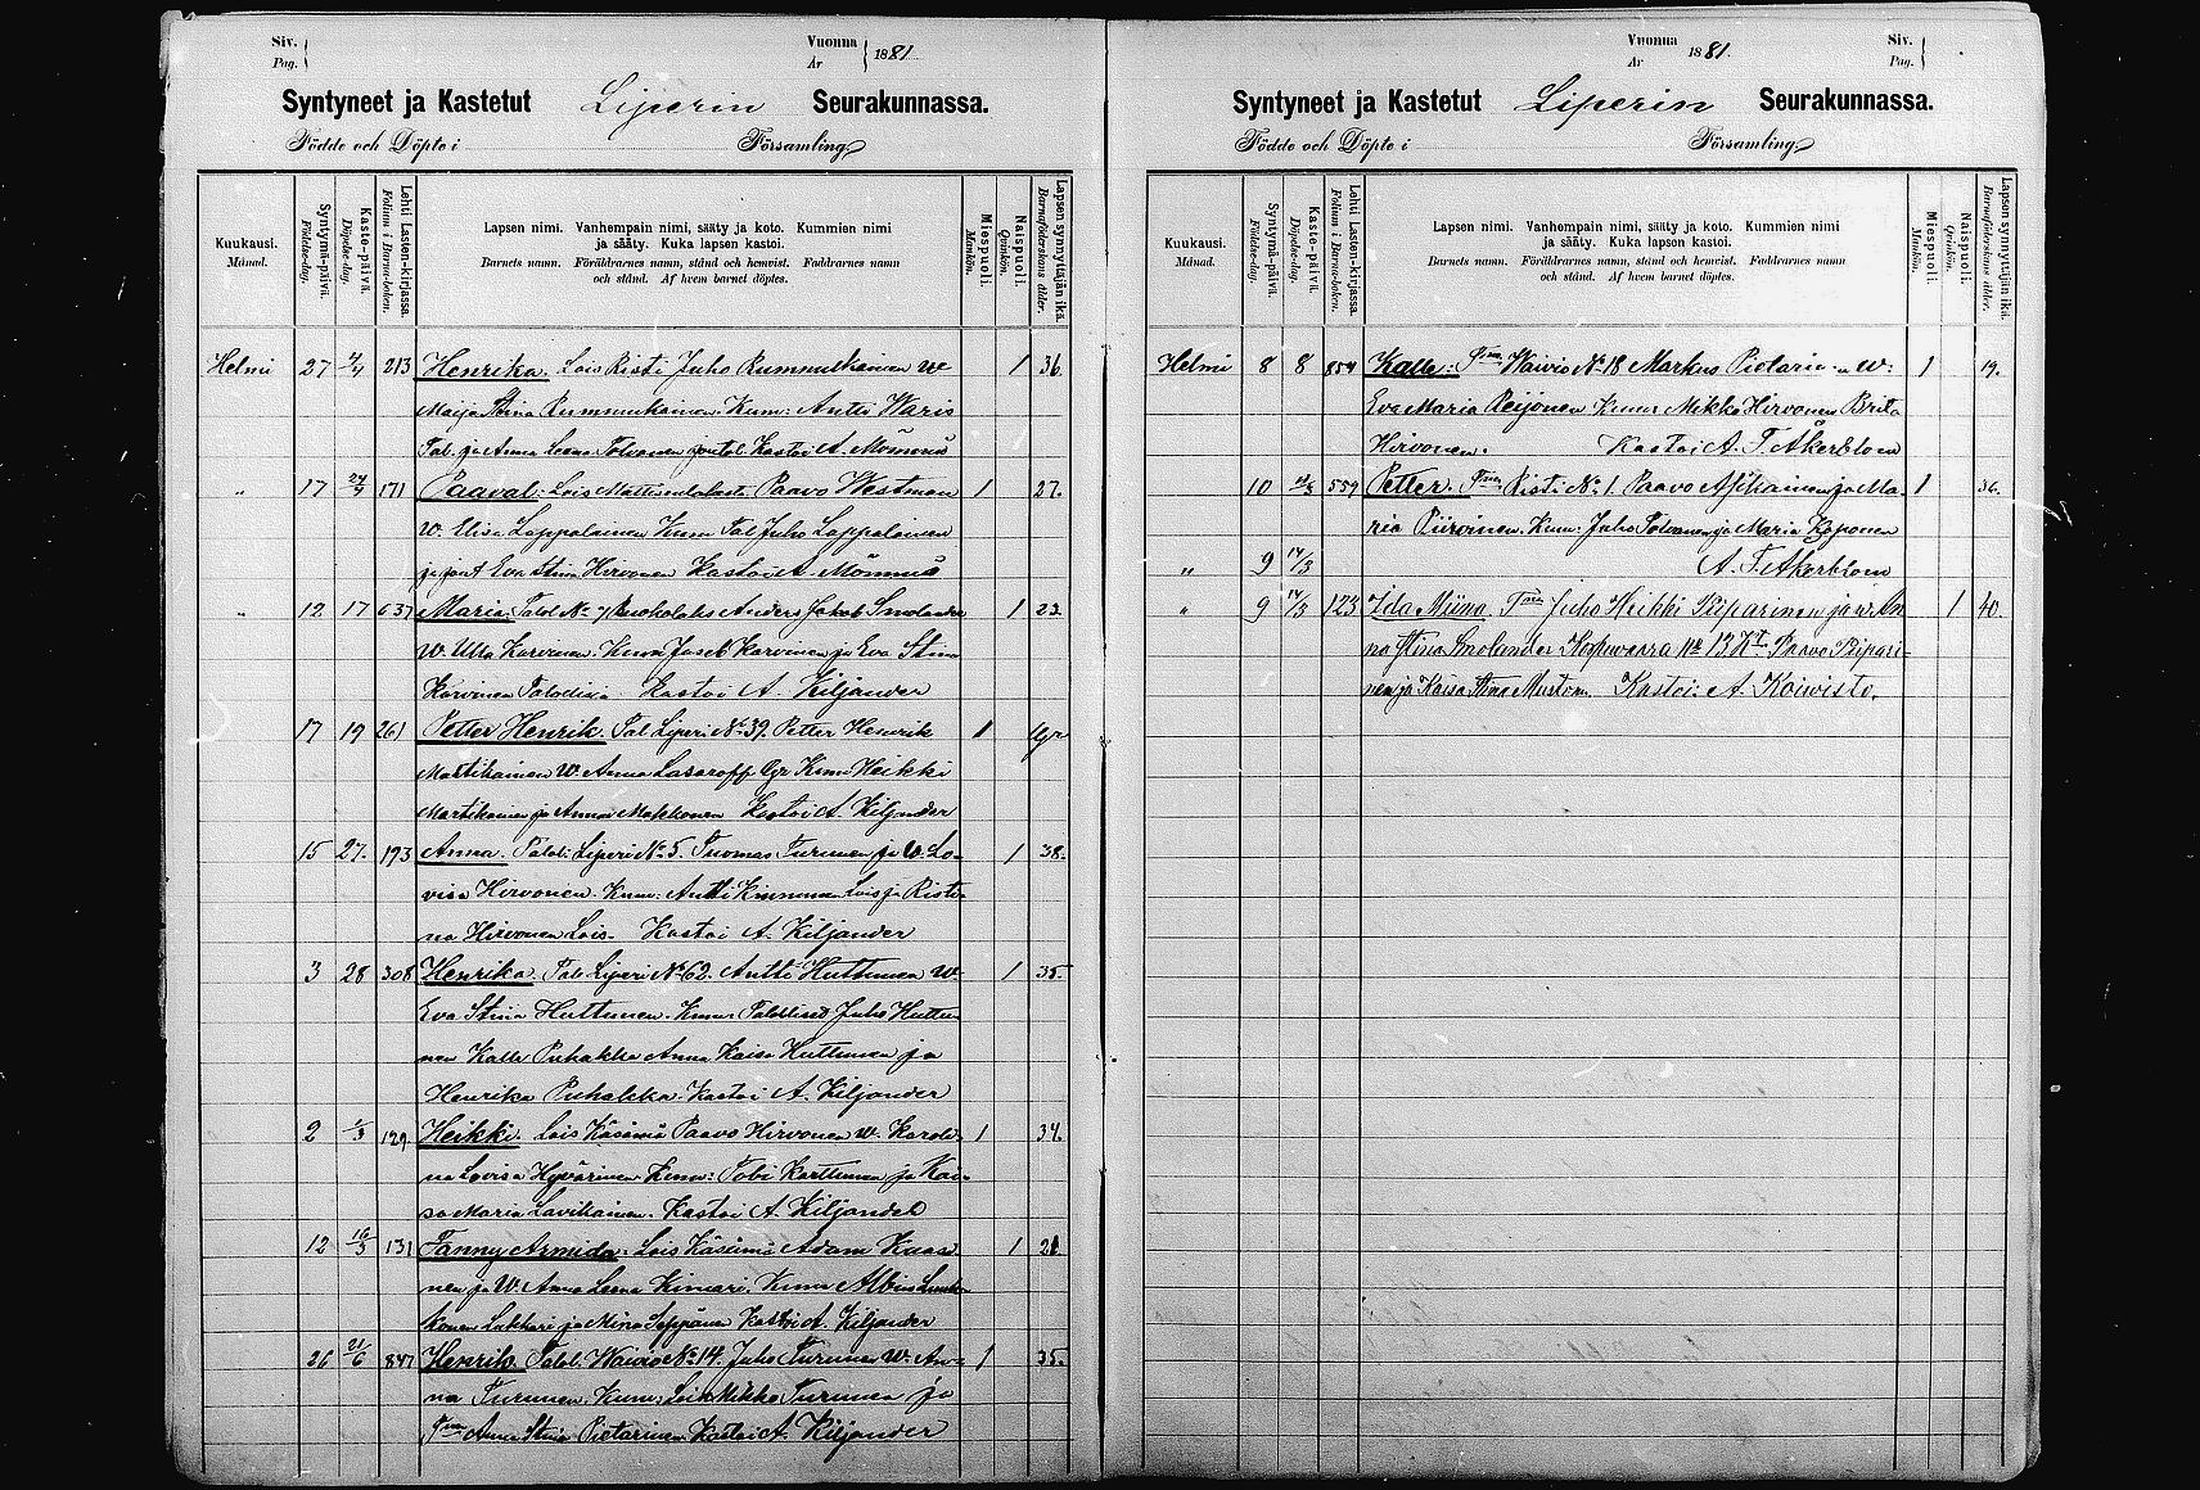 Siv. Vuonna 1881
Pag. År
Syntyneet ja Kastetut Liperin Seurakunnassa.
Födde och Döpte i Församling.
Kuukausi. Månad.
Syntymä-päivä. Födelse-dag.
Kaste-päivä. Döpelse-dag.
Lehti Lasten-kirjassa. Folium i Barna-boken.
Lapsen nimi. Vanhempain nimi, sääty ja koto. Kummien nimi
ja sääty. Kuka lapsen kastoi.
Barnets namn. Föräldrarnes namn, stånd och hemvist. Faddrarnes namn
och stånd. Af hvem barnet döptes.
Miespuoli. Mankön.
Naispuoli. Qvinkön.
Lapsen synnyttäjän ikä. Barnaföderskans ålder.
Helmi 27 4/4 213 Henrika. Lois Risti Juho Rummukainen W 1 36.
Maija Stina Rummukainen. Kum: Antti Waris
Tal. ja Anna Leena Tolvanen Kastoi A.
" 17 24/4 171 Paaval: Lois Paavo Westman 1 27.
W. Elisa Lappalainen Kum Tal Juho Lappalainen
ja Eva Stina Hirvonen Kastoi A.
" 12 17 637 Maria. Talol No 7 Anders Jakob Smolander 1 23.
W. Ulla Karvinen. Kum Josef Karvinen ja Eva Stina
Karvinen Talollisia. Kastoi A. Kiljander
17 19 261 Petter Henrik. Tal Liperi No 39. Petter Henrik 1
Martikainen W. Anna Lasaroff Kum Heikki
Martikainen ja Anna Makkonen Kastoi A. Kiljander
15 27. 193 Anna. Talol: Liperi No 5. Tuomas Turunen ja W. Lo- 1 38.
visa Hirvonen. Kum: Antti Kinnunen Lois ja Risti-
na Hirvonen Lois. Kastoi A. Kiljander
3 28 308 Henrika. Tal. Liperi No 62. Antti Huttunen W. 1 35.
Eva Stina Huttunen. Kum Talolliset Juho Huttu
nen Kalle Puhakka Anna Kaisa Huttunen ja
Henrika Puhakka. Kastoi A. Kiljander
2 1/3 129 Heikki. Lois Käsämä Paavo Hirvonen W. Karoli- 1 34.
na Lovisa Hyvärinen Kum: Tobi Karttunen ja Kai-
sa Maria Lavikainen. Kastoi A. Kiljander
12 16/3 131 Fanny Armida. Lois Käsämä Adam Kaasi 1
nen ja W. Anna Leena Kinnari. Kum Albin
konen Lukkari ja Mina Seppänen Kastoi A. Kiljander
26 21/6 847 Henrik. Talol. Waivio No 14. Juho Turunen W. An- 1 35.
na Turunen. Kum: Lois Mikko Turunen ja
Anna Stina Pietarinen Kastoi A. Kiljander
Vuonna 1881. Siv.
År Pag.
Syntyneet ja Kastetut Liperin Seurakunnassa.
Födde och Döpte i Församling.
Kuukausi. Månad.
Syntymä-päivä. Födelse-dag.
Kaste-päivä. Döpelse-dag.
Lehti Lasten-kirjassa. Folium i Barna-boken.
Lapsen nimi. Vanhempain nimi, sääty ja koto. Kummien nimi
ja sääty. Kuka lapsen kastoi.
Barnets namn. Föräldrarnes namn, stånd och hemvist. Faddrarnes namn
och stånd. Af hvem barnet döptes.
Miespuoli. Mankön.
Naispuoli. Qvinkön.
Lapsen synnyttäjän ikä. Barnaföderskans ålder.
Helmi 8 8 854 Kalle: Waivio No 18 Markus Pietarinen W: 1 19.
Eva Maria Reijonen Kum Mikko Hirvonen Brita
Hirvonen. Kastoi A. F. Åkerblom
10 559 Petter. Risti No 1. Paavo Asikainen ja Ma- 1 36.
ria Piiroinen. Kum: Juho Tolvanen ja Maria Kopponen
" 9 14/3 A. F. Åkerblom
" 9 14/3 123 Ida Miina. Juho Heikki Piiparinen ja w. An 1 40.
na Stina Smolander No 13 Kt. Paavo Piipari-
nen ja Kaisa Stina Mustonen. Kastoi: A. Koiwisto.